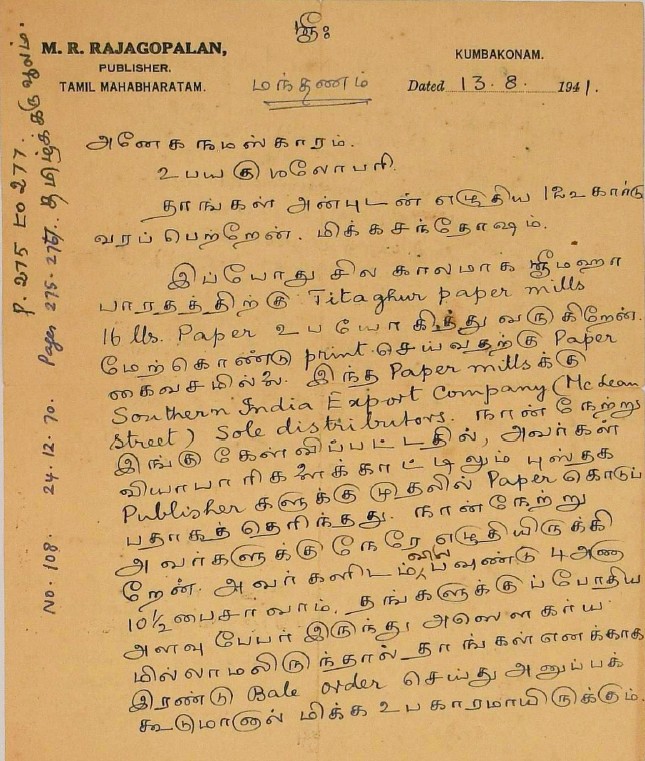 ஸ்ரீ:
M. R. RAJAGOPALAN,
PUBLISHER.
TAMIL MAHABHARATAM.
மந்தணம்
KUMBAKONAM.
Dated 13.8. 1941.
அனேக நமஸ்காரம்.
உபயகுமலோபரி.
தாங்கள் அன்புடன் எழுதிய கார்டு
வரப் பெற்றேன். மிக்க சந்தோஷம்.
இப்போது சில காலமாக ஸ்ரீமஹா
பாரதத்திற்கு Titaghur paper mills
16 lbs. Paper உபயோகித்து வருகிறேன்.
மேற்கொண்டு print செய்வதற்கு Paper
கைவசமில்லை. இந்த Paper millsக்கு
Southern India Export Company (Mc dean
Street) Sole distributors. நான் நேற்று
இங்கு கேள்விப்பட்டதில், அவர்கள்
வியாபாரிகளைக்காட்டிலும் புஸ்தக
Publisherகளுக்கு முதலில் Paper கொடுப்
பதாகத் தெரிந்தது. நான் நேற்று
அவர்களுக்கு நேரே எழுதியிருக்கி
றேன். அவர்களிடம் விலை பவுண்டு 4 அணா
10½ பைசாவாம். தங்களுக்குப் போதிய
அளவு பேப்பர் இருந்து அஸௌகர்ய
மில்லாமலிருந்தால் தாங்கள் எனக்காக
இரண்டு Bale order செய்து அனுப்பக்
கூடுமானால் மிக்க உபகாரமாயிருக்கும்.
P. 275 to 277.
No. 108. 24.12.70. Pages 275-277. தமிழ்க்கருவூலம்.